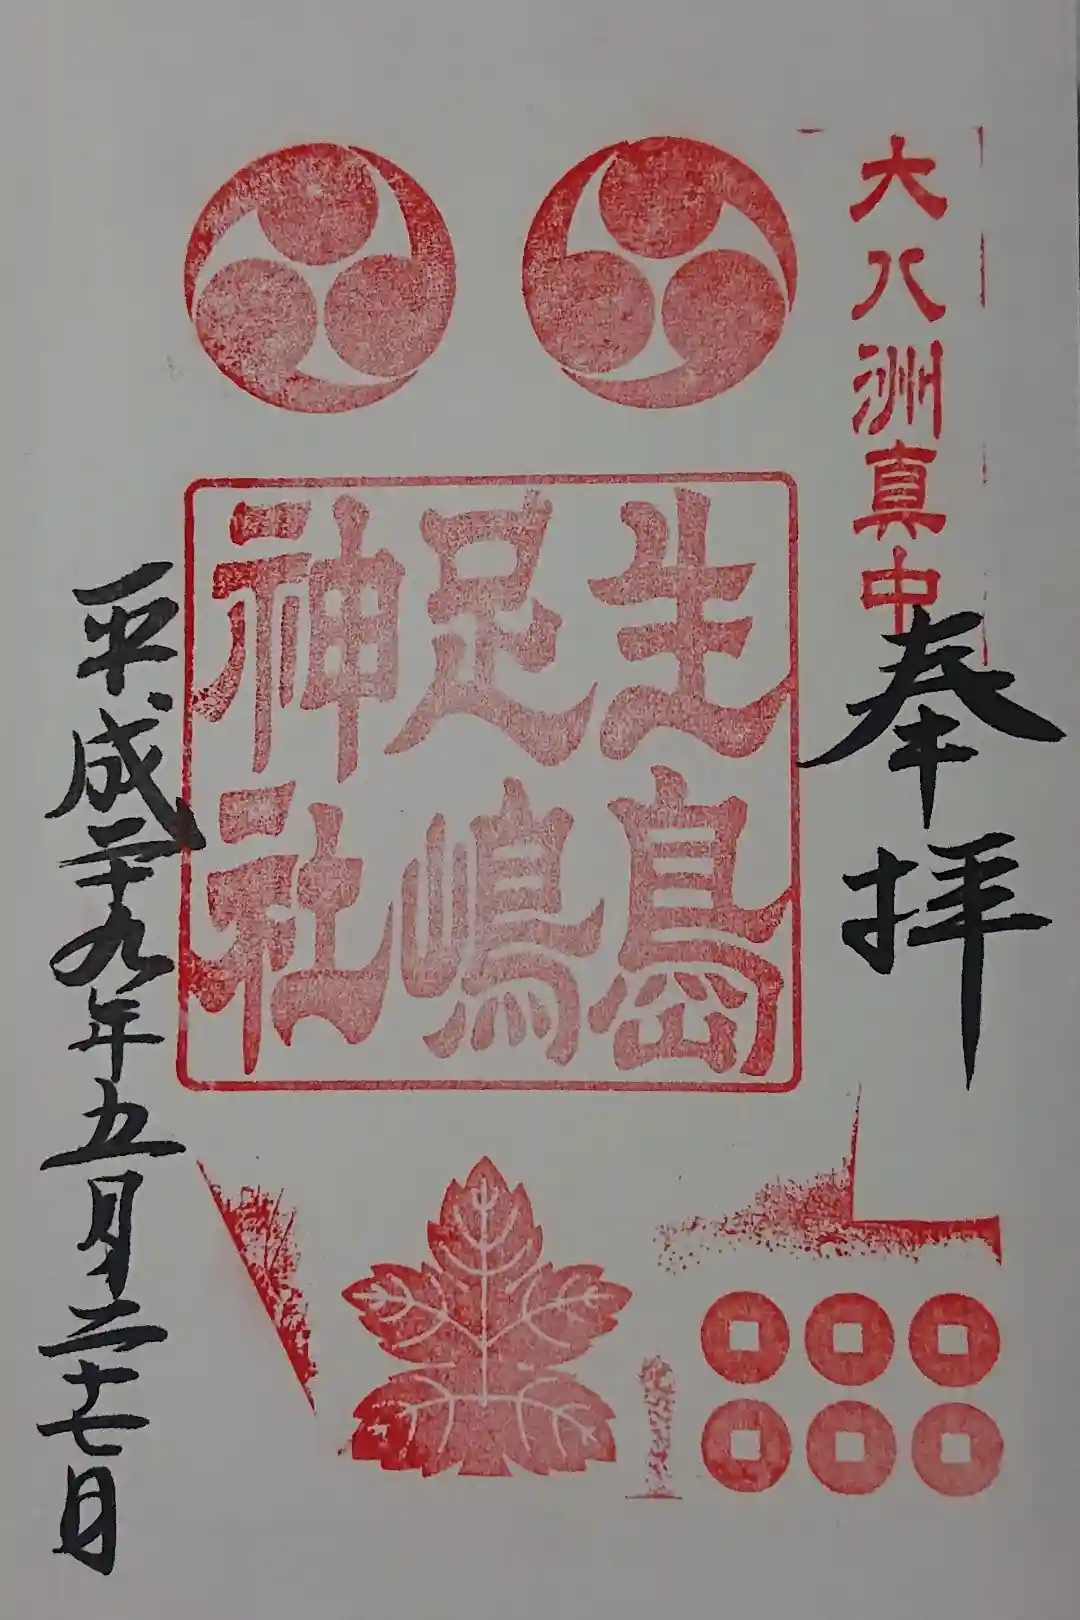 大八洲真中
奉拝
生島
足嶋
神社
平成二十九年五月二十七日